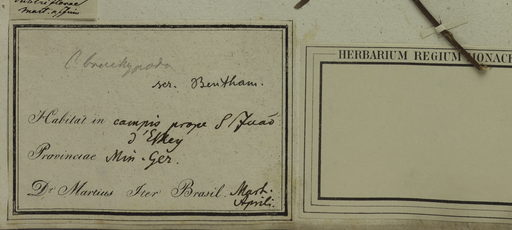 mart. affinis
C brachypoda
rev. Bentham.
Habitat in campis prope S/Juaõ
d'Elkey
Provinciae Min. Ger.
Dr Martius Iter Brasil. Mart.
Aprili.
HERBARIUM REGIUM MONACE